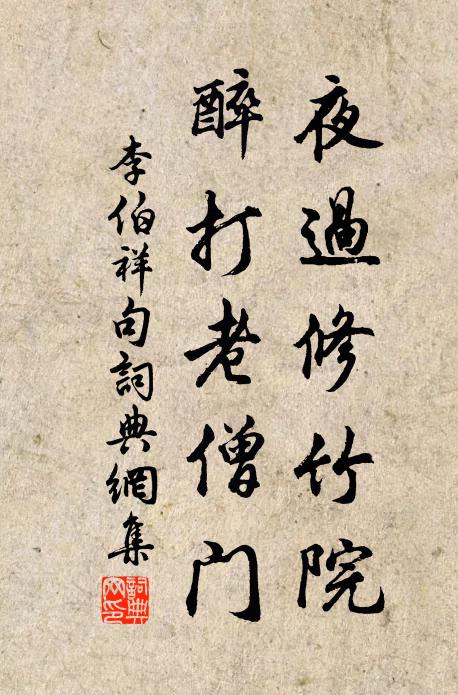 夜過修竹院
醉打老僧門
李伯祥句詞典網集
詞典網印